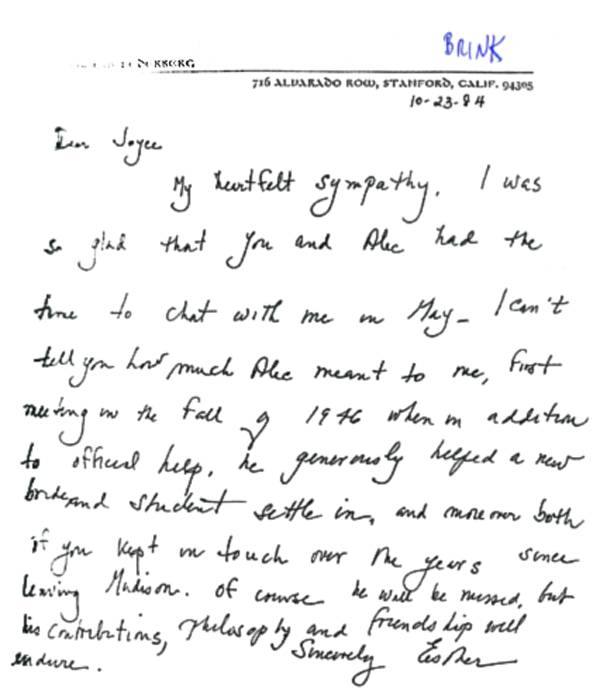 BRINK
DERBERG
716 ALVARADO ROW, STANFORD, CALIF. 94305
10-23-84
Dear Joyce
My heartfelt sympathy. I was
so glad that you and Alec had the
time to chat with me in May - I can't
tell you how much Alec meant to me, first
meeting in the Fall of 1946 when in addition
to official help, he generously helped a new
bride and student settle in, and moreover both
of you kept in touch over the years since
leaving Madison. Of course he will be missed, but
his contributions, philosophy and friendship will
endure. Sincerely Esther